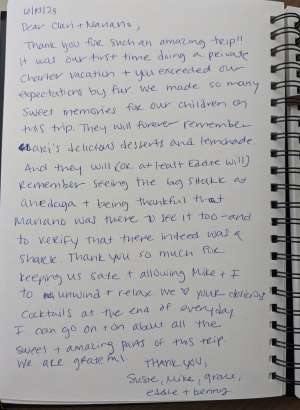 Dear Clari + Mariano,
Thank you for such an amazing trip!!
It was our first time doing a private
charter vacation + you exceeded our
expectations by far. We made so many
sweet memories for our children on
this trip. They will forever remember
delicious desserts and lemonade.
And they will (or at least Eddie will)
remember seeing the big shark at
anegada + being thankful that
Mariano was there to see it too - and
to verify that there indeed was a
shark. Thank you so much for
keeping us safe + allowing Mike + I
to unwind + relax. We ♡ your delicious
cocktails at the end of everyday.
I can go on + on about all the
sweet + amazing parts of this trip.
We are grateful.
Thank you,
Susie, Mike, Grace,
Eddie + Benny